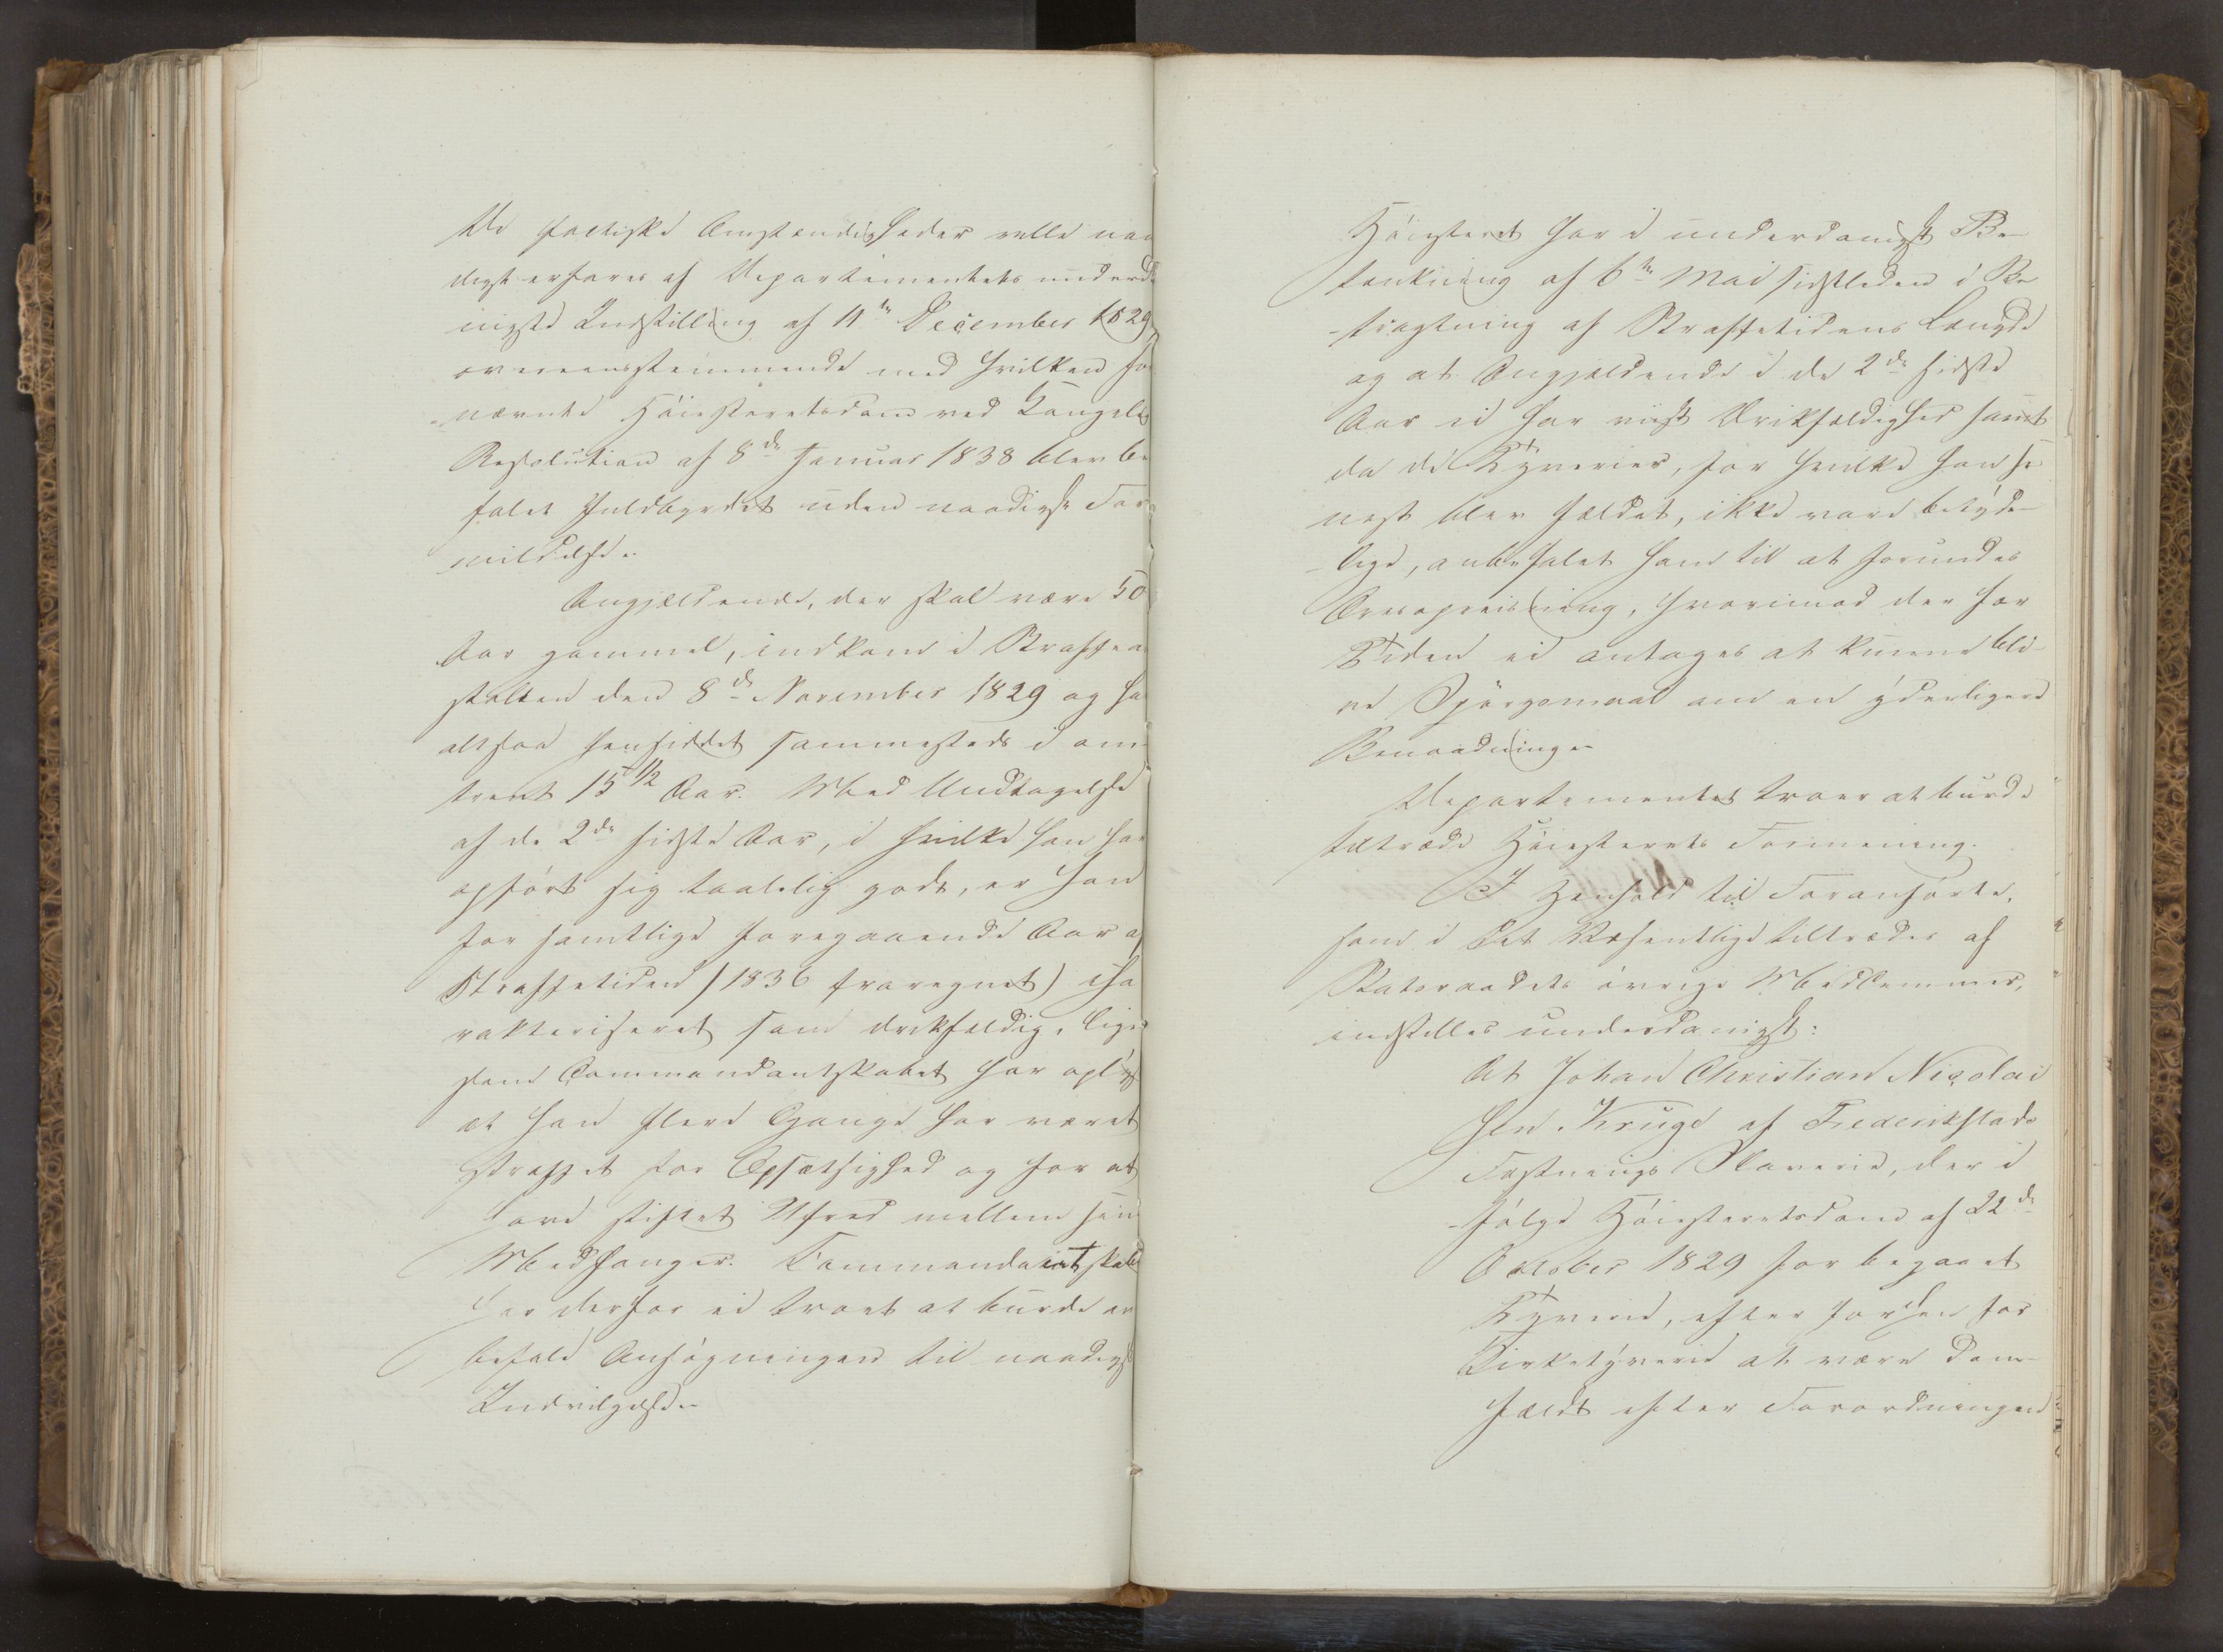 De factiske Omstændigheder ville naa
digst erfares af Departementets underda
nigste Indstilling af 11te December 1829,
overeensstemmende med hvilken for
nævnte Høiesteretsdom ved Kongelig
Resolution af 8de Januar 1838 blev be
falet fuldbyrdet uden naadigst For
mildelse.
Angjældende, der skal være 50
Aar gammel, indkom i Straffean
stalten den 8de November 1829 og har
altsaa hensiddet sammesteds i om
trent 15 1/2 Aar. Med Undtagelse
af de 2de sidste Aar, i hvilke han har
opført sig taalelig godt, er han
for samtlige foregaaende Aar af
Straffetiden (1836 fraregnet) cha
rakteriseret som drikfældig, lige
som Commandantskabet har oplyst
at han flere Gange har været
straffet for Opsætsighed og for at
have stiftet Ufred mellem sine
Medfanger. Commandantskabet
har derfor ei troet at burde an
befale Ansøgningen til naadigst
Indvilgelse.
Høiesteret har i underdanigst Be
tænkning af 6te Mai sidstleden i Be
tragtning af Straffetidens Længde
og at Angjældende i de 2de sidste
Aar ei har viist Drikfældighed samt
da de Tyverier, for hvilke han se
nest blev fældet, ikke vare betyde
lige, anbefalet ham til at forundes
Overopreisning, hvorimod der for
Tiden ei antages at kunne bli
ve Spørgsmaal om en yderligere
Benaadning.
Departementet troer at burde
tiltræde Høiesterets Formening.
I Henhold til Foranførte,
som i Det Væsentlige tiltrædes af
Statsraadets øvrige Medlemmer,
indstilles underdanigst:
At Johan Christian Nicolai
sen Kruge af Frederikstads
Fæstnings Slaverie, der i
følge Høiesteretsdom af 22de
October 1829 for begaaet
Tyverie, efter forhen for
Kirketyverie at være dom
fældt efter Forordningen